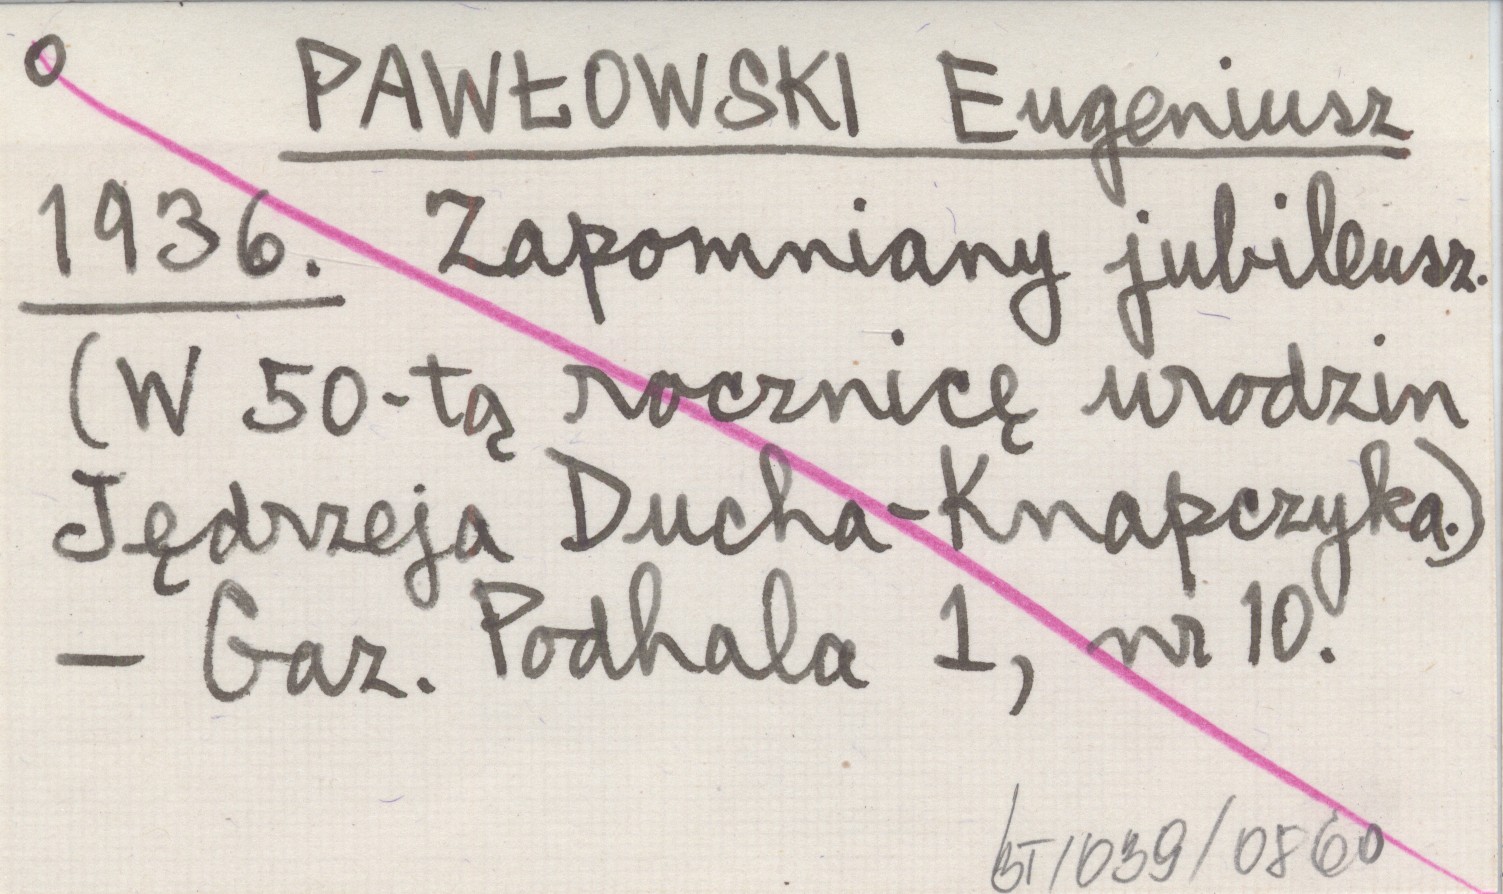 o PAWŁOWSKI Eugeniusz
1936. Zapomniany jubileusz.
(W 50-tą rocznicę urodzin
Jędrzeja Ducha-Knapczyka.)
– Gaz. Podhala 1, nr 10.
BT/039/0860